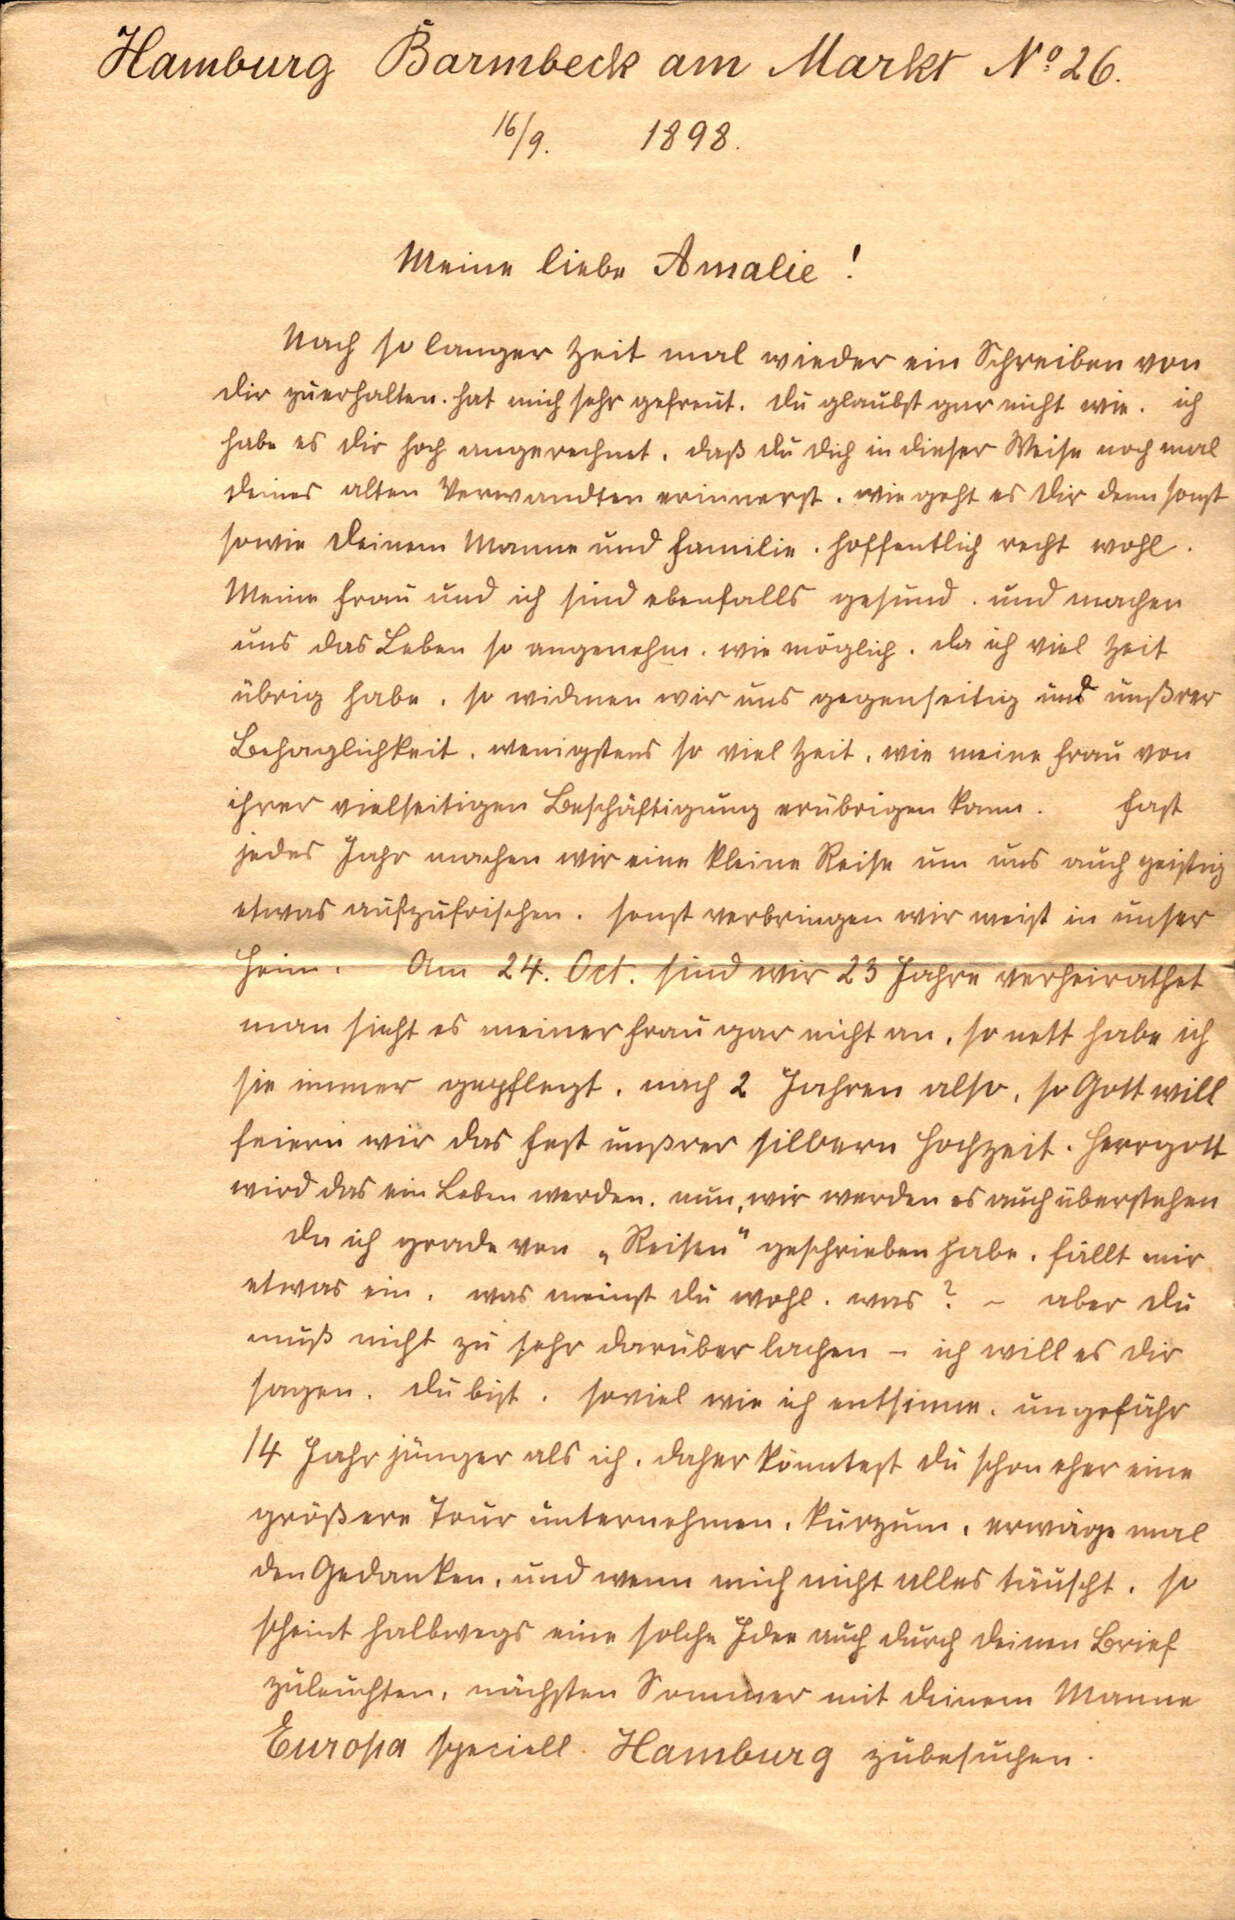 Hamburg Barmbeck am Markt No 26.
16/9. 1898.
Meine liebe Amalie!
Nach so langer Zeit mal wieder ein Schreiben von
dir zuerhalten. hat mich sehr gefreut. du glaubst gar nicht wie. ich
habe es dir hoch angerechnet. daß du dich in dieser Weise noch mal
deines alten Verwandten erinnerst. wie geht es dir denn sonst
sowie deinem Manne und Familie. hoffentlich recht wohl.
Meine Frau und ich sind ebenfalls gesund. und machen
uns das Leben so angenehm. wie möglich. da ich viel Zeit
übrig habe. so widmen wir uns gegenseitig und unßrer
Behaglichkeit. wenigstens so viel Zeit. wie meine Frau von
ihrer vielseitigen Beschäftigung erübrigen kann. Fast
jedes Jahr machen wir eine kleine Reise um uns auch geistig
etwas aufzufrischen. sonst verbringen wir meist in unser
Heim. Am 24. Oct. sind wir 23 Jahre verheirathet
man sieht es meiner Frau gar nicht an. so nett habe ich
sie immer gepflegt. nach 2 Jahren also. so Gott will
feiern wir das Fest unßrer silbern Hochzeit. Herrgott
wird das ein Leben werden. nun, wir werden es auch überstehen
da ich grade von „Reisen“ geschrieben habe. fällt mir
etwas ein. was meinst du wohl. was? – aber du
muß nicht zu sehr darüber lachen – ich will es dir
sagen. du bist. soviel wie ich entsinne. ungefähr
14 Jahr jünger als ich. daher könntest du schon eher eine
größere Tour unternehmen. kurzum. erwäge mal
den Gedanken. und wenn mich nicht alles täuscht. so
scheint halbwegs eine solche Idee auch durch deinen Brief
zuleuchten. nächsten Sommer mit deinem Manne
Europa speciell Hamburg zubesuchen.